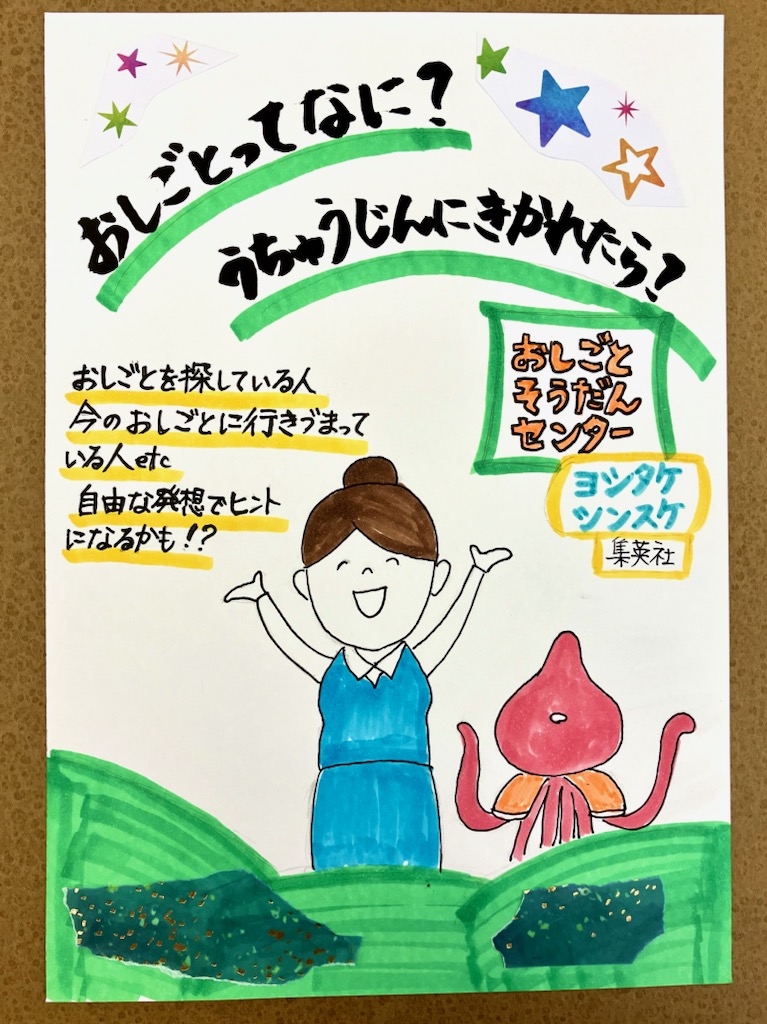 おしごとってなに?
うちゅうじんにきかれたら?
おしごとを探している人
今のおしごとに行きづまって
いる人etc
自由な発想でヒント
になるかも!?
おしごと
そうだん
センター
ヨシタケ
シンスケ
集英社